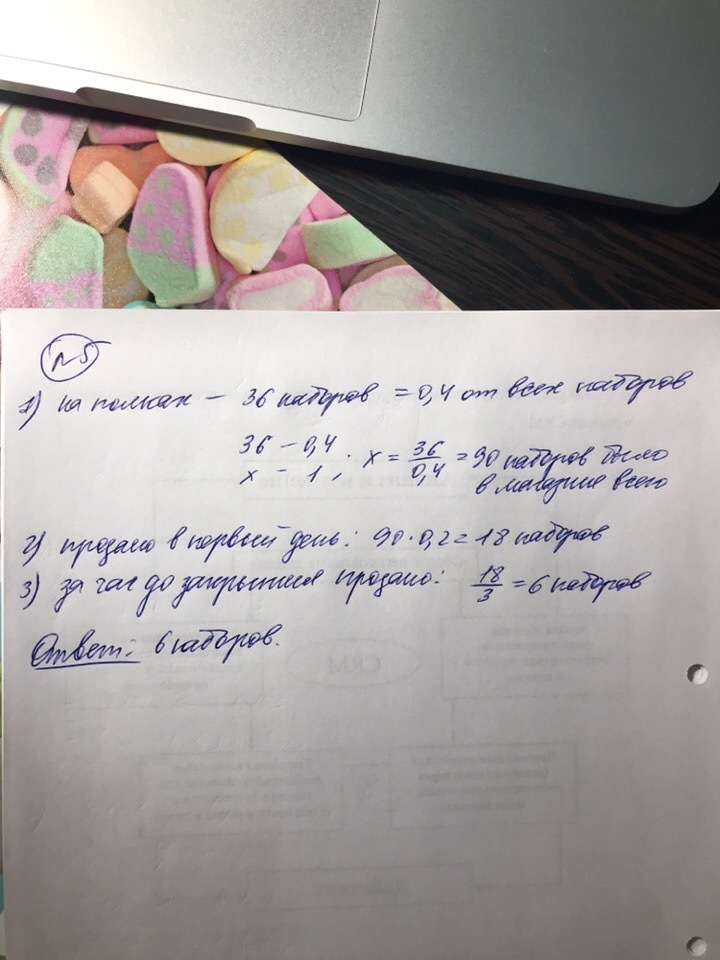 №5
1) на полках – 36 наборов = 0,4 от всех наборов
36 – 0,4
x – 1 ; x = 36/0,4 = 90 наборов было
в магазине всего
2) продано в первый день: 90·0,2 = 18 наборов
3) за час до закрытия продано: 18/3 = 6 наборов
Ответ: 6 наборов.
CRM